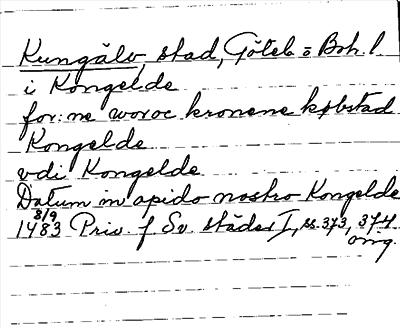 Kungälv, stad, Göteb. o Boh. l
i Kongelde
for:ne woroc kronene købstad
Kongelde
vdi Kongelde
Datum in opido nostro Kongelde
8/9
1483 Priv. f. Sv. städer I, ss. 373, 374
orig.